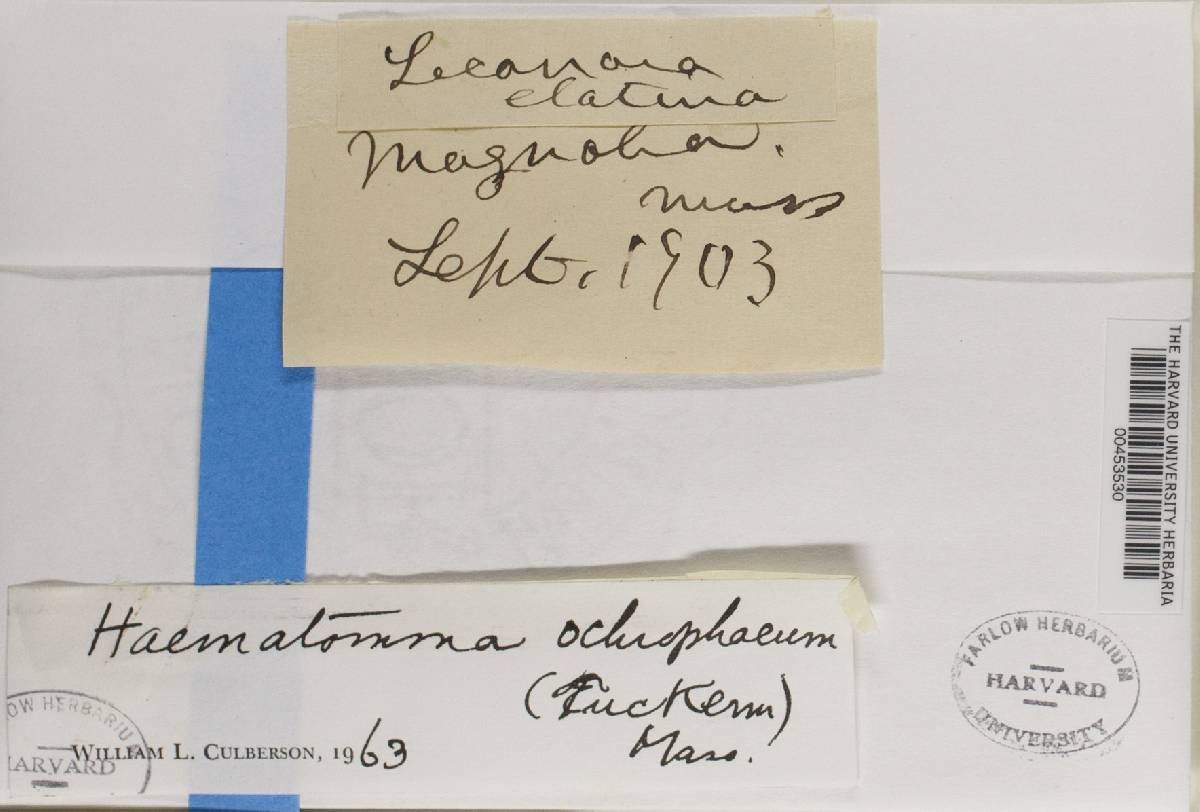 Lecanora
elatina
Magnolia.
Mass
Sept. 1903
THE HARVARD UNIVERSITY HERBARIA
00453530
Haematomma ochrophaeum
(Tuckerm)
Mass.
WILLIAM L. CULBERSON, 1963
OW HERBARIU
HARVARD
FARLOW HERBARIUM
HARVARD
UNIVERSITY